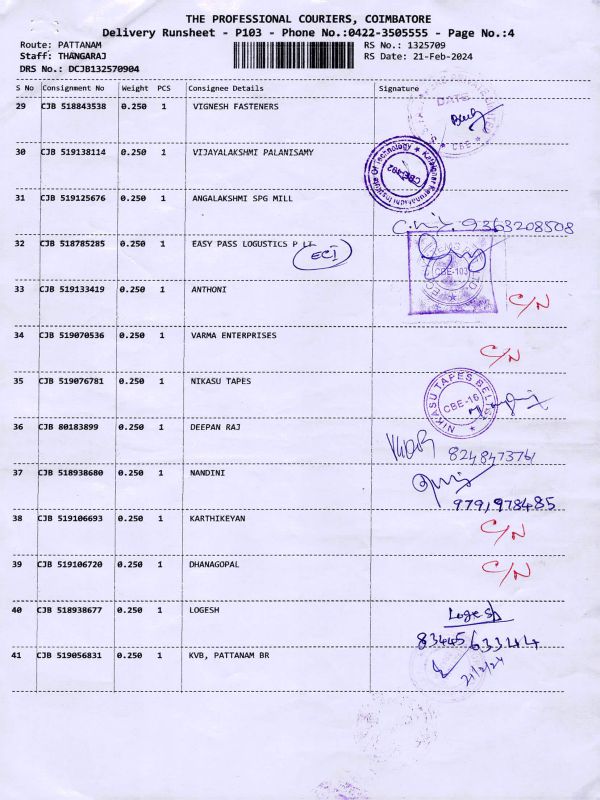 THE PROFESSIONAL COURIERS, COIMBATORE
Delivery Runsheet - P103 - Phone No.:0422-3505555 - Page No.:4
Route: PATTANAM RS No.: 1325709
Staff: THANGARAJ RS Date: 21-Feb-2024
DRS No.: DCJB132570904
S No Consignment No Weight PCS Consignee Details Signature
29 CJB 518843538 0.250 1 VIGNESH FASTENERS
DATE
CBE
30 CJB 519138114 0.250 1 VIJAYALAKSHMI PALANISAMY
Institute Of Technology
CBE-402
31 CJB 519125676 0.250 1 ANGALAKSHMI SPG MILL
9363208508
32 CJB 518785285 0.250 1 EASY PASS LOGUSTICS P LT
ECI
CBE-103
33 CJB 519133419 0.250 1 ANTHONI C/N
34 CJB 519070536 0.250 1 VARMA ENTERPRISES C/N
35 CJB 519076781 0.250 1 NIKASU TAPES
NIKASU TAPES BELTS
CBE-16
36 CJB 80183899 0.250 1 DEEPAN RAJ
8248473761
37 CJB 518938680 0.250 1 NANDINI
9791978485
38 CJB 519106693 0.250 1 KARTHIKEYAN C/N
39 CJB 519106720 0.250 1 DHANAGOPAL C/N
40 CJB 518938677 0.250 1 LOGESH Logesh
8344563344
41 CJB 519056831 0.250 1 KVB, PATTANAM BR
21/2/24